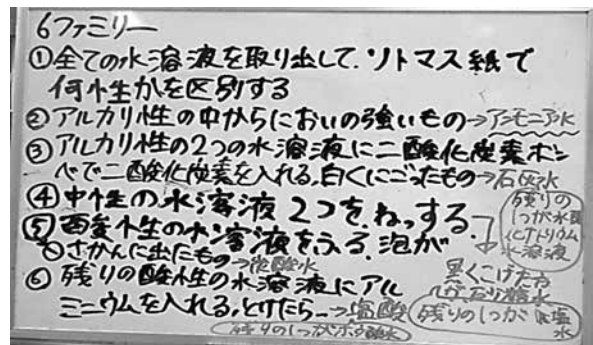 6ファミリー
①全ての水溶液を取り出して.リトマス紙で
何性かを区別する
②アルカリ性の中からにおいの強いもの→アンモニア水
③アルカリ性の2つの水溶液に二酸化炭素ボン
ベで二酸化炭素を入れる.白くにごったもの→石灰水
残りの
1つが水酸
化ナトリウム
水溶液
④中性の水溶液2つを.ねっする.
⑤酸性の水溶液をふる.泡が
さかんに出たもの→炭酸水
黒くこげた方
が砂糖水
残りの1つが食塩水
⑥残りの酸性の水溶液にアル
ミニウムを入れる.とけたら→塩酸
残りの1つがホウ酸水